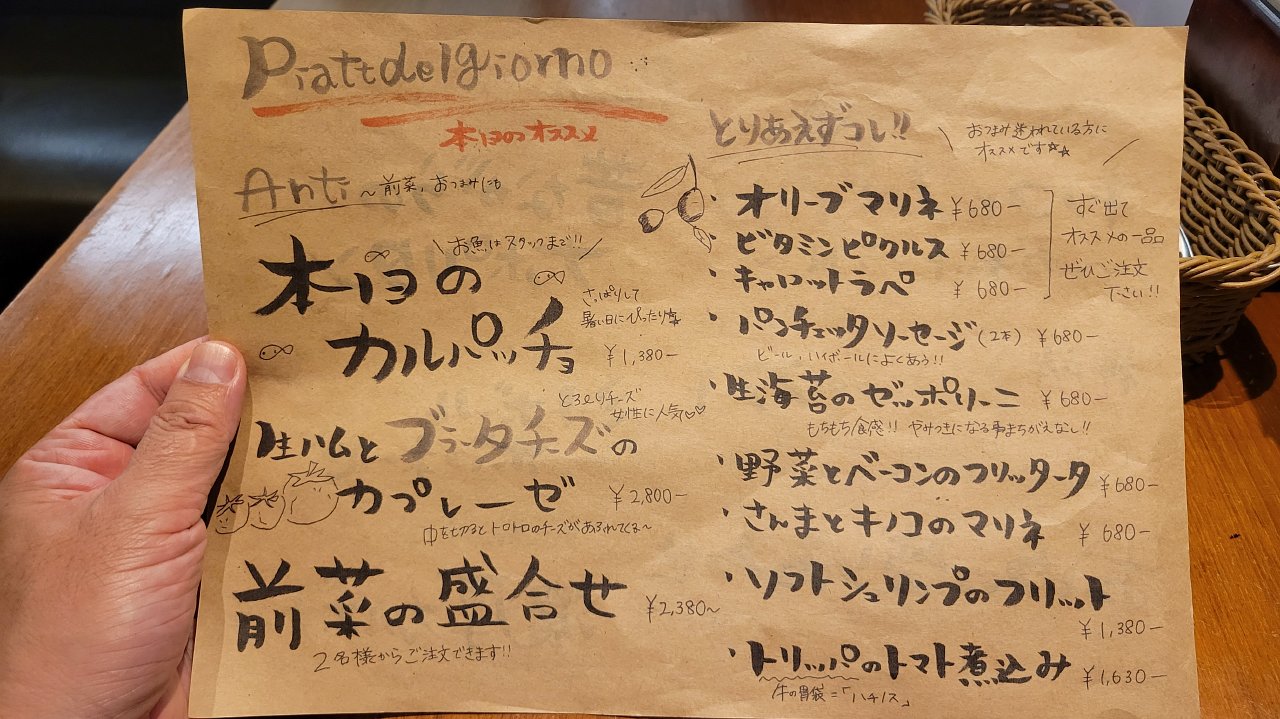 Piatt del giorno
本日のオススメ
Anti ～前菜、おつまみにも
\お魚はスタッフまで!!/
本日の
カルパッチョ
さっぱりして
暑い日にぴったり☆
¥1,380-
とろ〜りチーズ
女性に人気♡♡
生ハムとブラータチーズの
カプレーゼ ¥2,800-
中を切るとトロトロのチーズがあふれてくる〜
前菜の盛合せ ¥2,380〜
2名様からご注文できます!!
とりあえずコレ!!
\おつまみ迷われている方に
オススメです☆☆/
・オリーブマリネ ¥680-
・ビタミンピクルス ¥680-
・キャロットラペ ¥680-
すぐ出て
オススメの一品
ぜひご注文
下さい!!
・パンチェッタソーセージ(2本) ¥680-
ビール、ハイボールによくあう!!
・生海苔のゼッポリーニ ¥680-
もちもち食感!! やみつきになる事まちがえなし!!
・野菜とベーコンのフリッタータ ¥680-
・さんまとキノコのマリネ ¥680-
・ソフトシュリンプのフリット
¥1,380-
・トリッパのトマト煮込み ¥1,630-
牛の胃袋=「ハチノス」